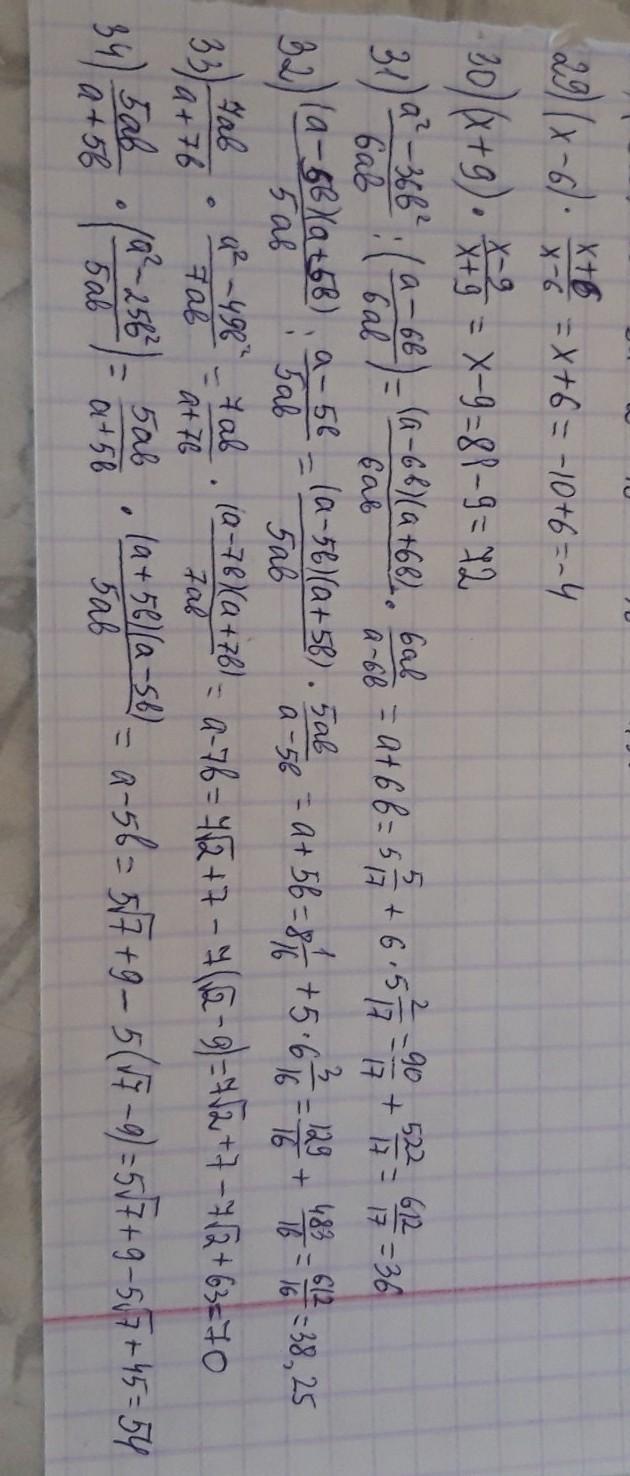 29) (x-6) · \frac{x+6}{x-6} = x+6 = -10+6 = -4
30) (x+9) · \frac{x-9}{x+9} = x-9 = 81-9 = 72
31) \frac{a²-36b²}{6ab} : (\frac{a-6b}{6ab}) = \frac{(a-6b)(a+6b)}{6ab} · \frac{6ab}{a-6b} = a+6b = 5\frac{5}{17} + 6·5\frac{2}{17} = \frac{90}{17} + \frac{522}{17} = \frac{612}{17} = 36
32) \frac{(a-5b)(a+5b)}{5ab} : \frac{a-5b}{5ab} = \frac{(a-5b)(a+5b)}{5ab} · \frac{5ab}{a-5b} = a+5b = 8\frac{1}{16} + 5·6\frac{3}{16} = \frac{129}{16} + \frac{483}{16} = \frac{612}{16} = 38,25
33) \frac{7ab}{a+7b} · \frac{a²-49b²}{7ab} = \frac{7ab}{a+7b} · \frac{(a-7b)(a+7b)}{7ab} = a-7b = 7√2+7-7(√2-9) = 7√2+7-7√2+63 = 70
34) \frac{5ab}{a+5b} · (\frac{a²-25b²}{5ab}) = \frac{5ab}{a+5b} · \frac{(a+5b)(a-5b)}{5ab} = a-5b = 5√7+9-5(√7-9) = 5√7+9-5√7+45 = 54